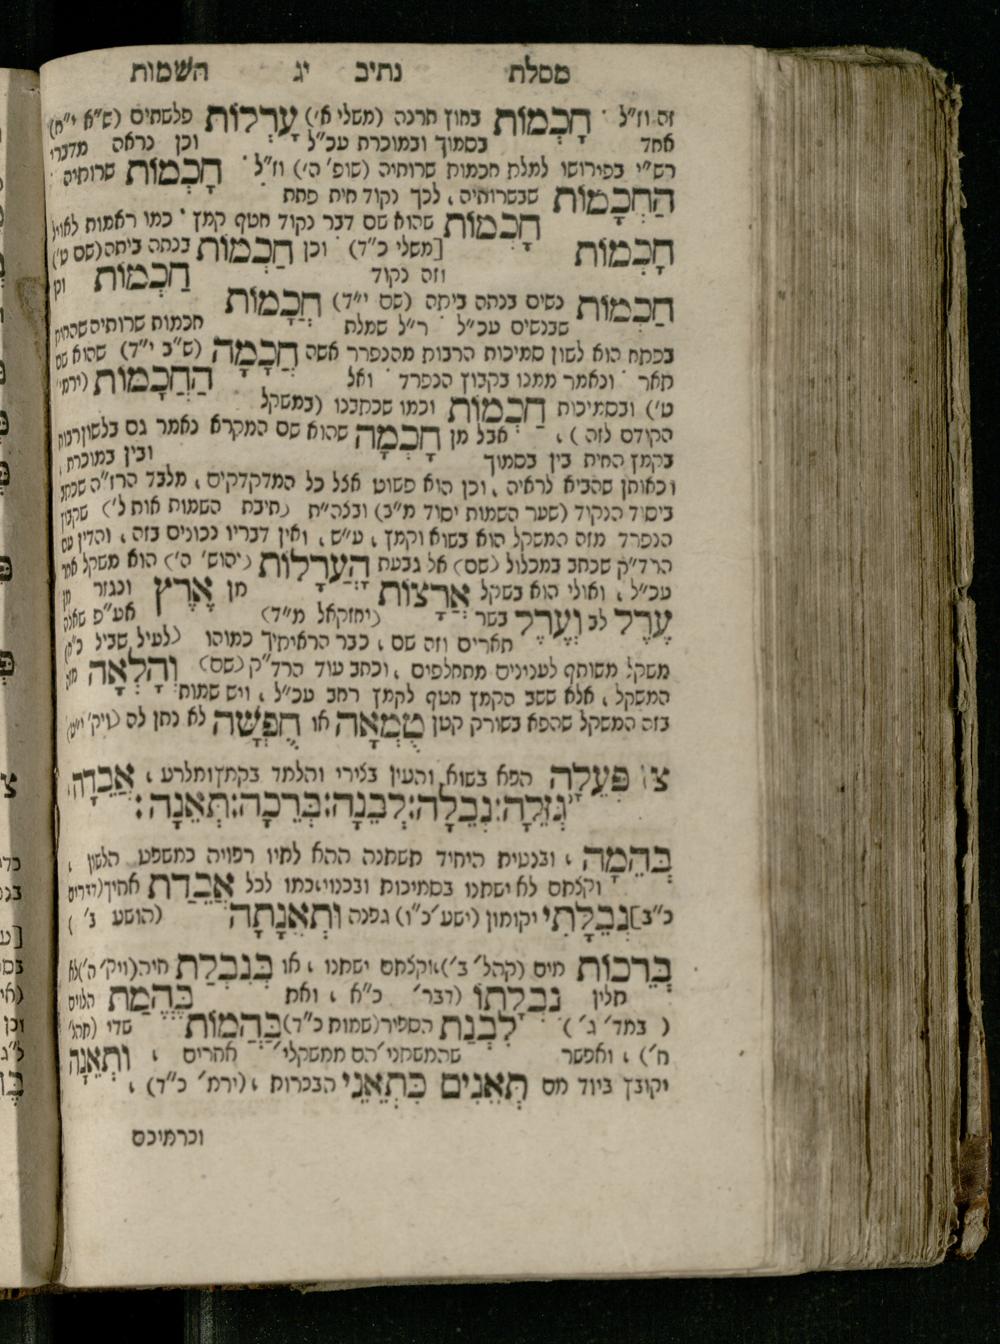 מסלת נתיב יג השמות
זה וז"ל חָכְמוֹת בחוץ תרנה (משלי א') עָרְלוֹת פלשתים (ש"א י"ח)
אחד בסמוך ובמוכרת עכ"ל וכן נראה מדברי
רש"י בפירושו למלת חכמות שרותיה (שופ' ה') וז"ל חָכְמוֹת שרותיה
הַחְכָמוֹת שבשרותיה, לכך נקוד חית פתח
חָכְמוֹת שהוא שם דבר נקוד חטף קמץ כמו ראמות לאויל
חָכְמוֹת [משלי כ"ד) וכן חַכְמוֹת בנתה ביתה (שם ט')
וזה נקוד חַכְמוֹת וכן
חַכְמוֹת נשים בנתה ביתה (שם י"ד) חֲכָמוֹת
שבנשים עכ"ל ר"ל שמלת חכמות שרותיה שהחית
בפתח הוא לשון סמיכות הרבות מהנפרד אשה חֲכָמָה (ש"ב י"ד) שהוא שם
תאר ונאמר ממנו בקבוץ הנפרד ואל הַחֲכָמוֹת (ירמ'
ט') ובסמיכות חַכְמוֹת וכמו שכתבנו (במשקל
הקודם לזה), אבל מן חָכְמָה שהוא שם המקרא נאמר גם בלשון רבות
בקמץ החית בין בסמוך ובין במוכרת,
וכאותן שהביא לראיה, וכן הוא פשוט אצל כל המדקדקים, מלבד הרז"ה שכתב
ביסוד הנקוד (שער השמות יסוד מ"ב) ובנה"ת (תיבת השמות אות ל') שקבוץ
הנפרד מזה המשקל הוא בשוא וקמץ, ע"ש, ואין דבריו נכונים בזה, והדין עם
הרד"ק שכתב במכלול (שם) אל גבעת הָעֲרָלוֹת (יהוש' ה') הוא משקל אחר
עכ"ל, ואולי הוא בשקל אֲרָצוֹת מן אֶרֶץ ונגזר מן
עֶרֶל לב וְעֶרֶל בשר (יחזקאל מ"ד) אע"פ שאלה
תארים וזה שם, כבר הראיתיך כמוהו (לעיל שביל כ"ח)
משקל משותף לענינים מתחלפים, וכתב עוד הרד"ק (שם) וְהָלְאָה
המשקל, אלא ששב הקמץ חטף לקמץ רחב עכ"ל, ויש שמות
בזה המשקל שהפא בשורק קטן טֻמְאָה או חֻפְשָׁה לא נתן לה (ויק' י"ט)
צ' פְּעֵלָה הפא בשוא והעין בצירי והלמד בקמץ ומלרע, אֲבֵדָה,
גְּזֵלָה: נְבֵלָה: לְבֵנָה: בְּרֵכָה: תְּאֵנָה:
בְּהֵמָה, ובנטית היחיד תשתנה ההא לתיו רפויה כמשפט הלשון,
וקצתם לא ישתנו בסמיכות ובכנוי, כמו לכל אֲבֵדַת אחיך (דברים
כ"ב) נְבֵלָתִי יקומון (ישע' כ"ו) גפנה וּתְאֵנָתָהּ (הושע ב')
בְּרֵכוֹת מים (קהל' ב'), וקצתם ישתנו, או בְּנִבְלַת חיה (ויק' ה') לא
תלין נִבְלָתוֹ (דבר' כ"א), ואת בֶּהֱמַת הלוים
(במד' ג') לִבְנַת הספיר (שמות כ"ד) בַּהֲמוֹת שדי (תהל'
ח'), ואפשר שהמשתני' הם ממשקלי' אחרים, וּתְאֵנָה
יקובץ ביוד מם תְּאֵנִים כִּתְאֵנֵי הבכרות, (ירמ' כ"ד),
וכרמיכם